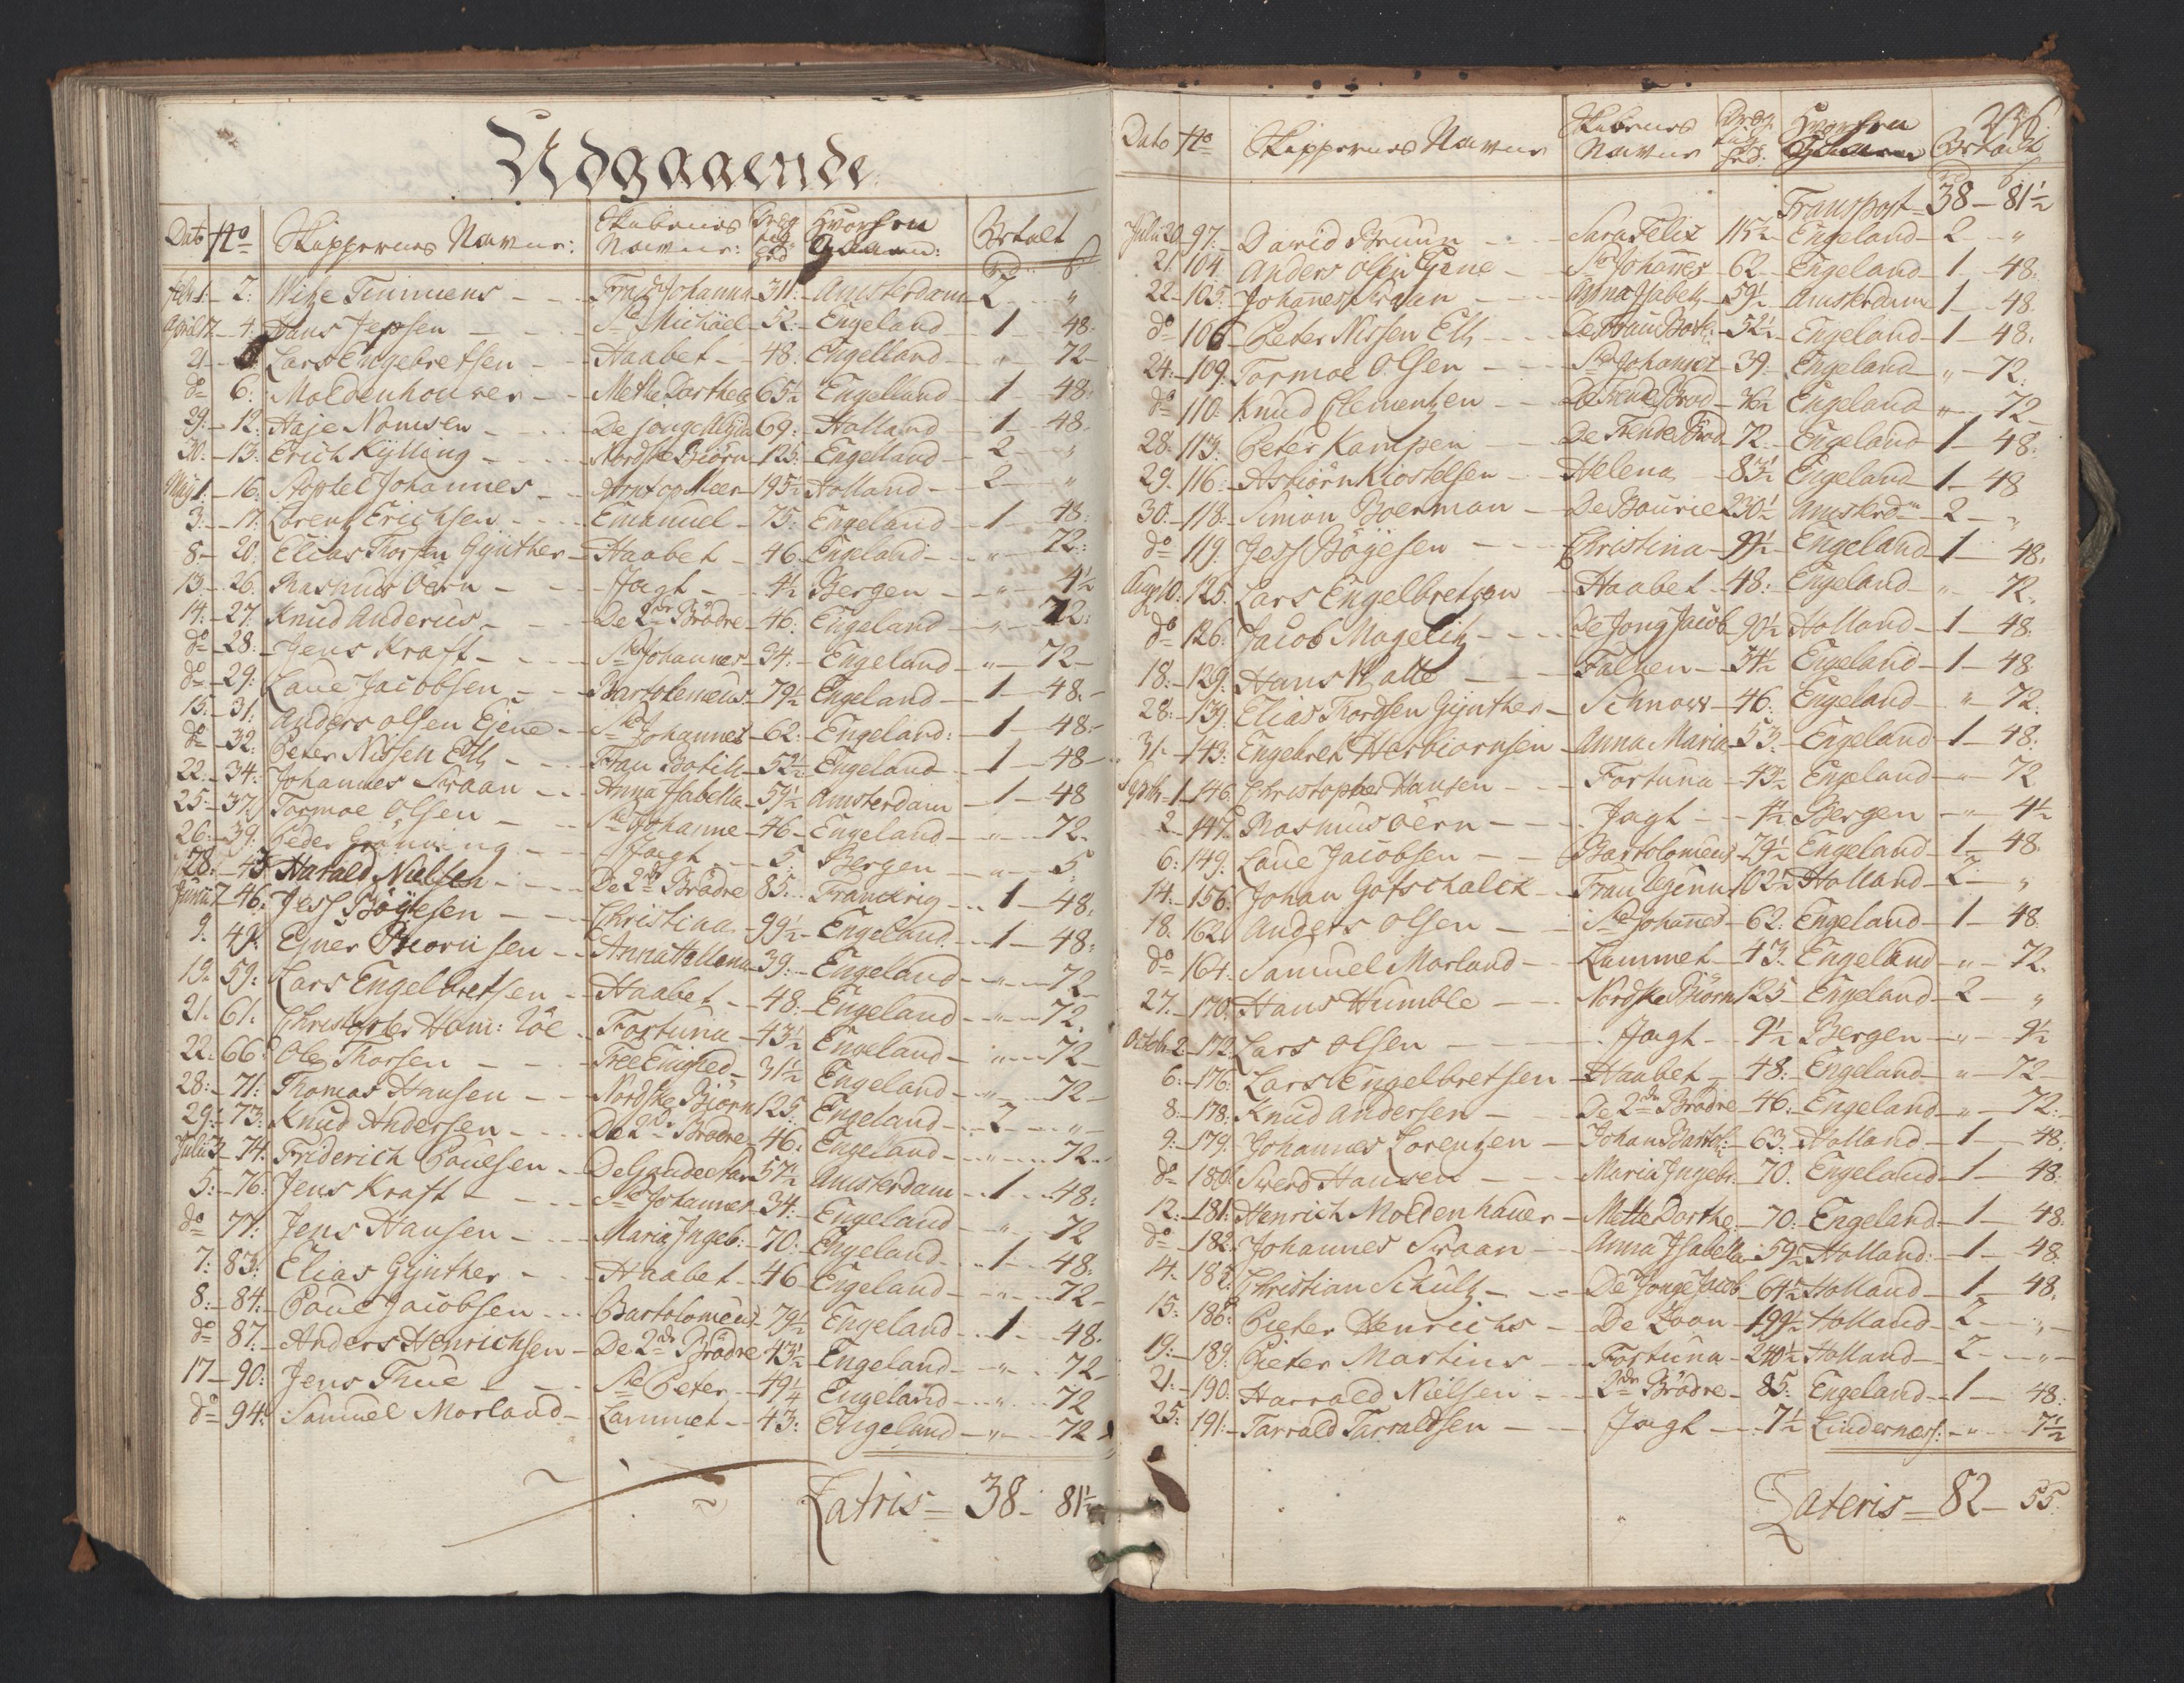 Udgaaende
Dato No Skippernes Navne: Skibernes Navne: Dræg tighed Hvorhen Betalt
Rd: s:
Febr 1 - 2: Wilje Timmens - Johanna 311: Amsterdam 2 "
April 17 - 4. Hans Jepsen - Ste Michäel - 52: Engeland 1 48.
21 - Lars Engebretsen - Haabet - 48. Engelland " 72
do 6. Moldenhouwer - Mette Dorthea 65½ Engelland 1 48.
29. - 12. Haje Nomsen - De jonge 69. Holland 1 48.
30. - 13. Erich Kylling - Nordske Biörn 125. Engelland 2 "
Maj 1. - 16. Stoptel Johannes - 195½ Holland 2 "
3. - 17. Lorentz Erichsen - Emanuel - 75. Engeland 1 48.
8. - 20. Elias Thorsen Gynther - Haabet - 46. Engeland - " 72.
13. - 26. Rasmus Öern - Jagt - 4½ Bergen - " 4½
14. - 27. Knud Anderius - De 2de Brödre - 46. Engeland - " 72.
do - 28. Jens Kraft - Ste Johannes - 34. Engeland - " 72
do - 29. Laue Jacobsen - Bartolemeus - 79½ Engeland - 1 48.
15. - 31. Anders olsen Ejene - Ste Johannes - 62. Engeland: 1 48.
do - 32. Peter Nissen Eth - Frau Botill - 52½ Engeland - 1 48
22. - 34. Johannes Swaan - Anna Isabella - 59½ Amsterdam - 1 48
25. - 37. Tormoe Olsen - Ste Johanne - 46 - Engeland - " 72.
26. - 39. Peder Grönning - Jagt - 5. Bergen - " 5.
28. - 43 Harald Nielsen - De 2de Brödre 85. Franckrig - 1 48.
Junii 7 - 46. Jess Böyesen - Christiana - 99½ Engeland - 1 48.
9. 49. Ejner Biornsen - Anna Hellena - 39. Engeland - " 72
19. 59. Lars Engelbretsen - Haabet - 48. Engeland - " 72.
21. 61. Christopher Ham: Töe - Fortuna - 43½ Engeland - " 72
22. 66. Ole Thorsen - Tree Enighed - 31½ Engeland - " 72
28. - 71. Thomas Hansen - Nordske Biörn 125. Engeland - 2 "
29. - 73. Knud Andersen - De 2de Brödre - 46. Engeland - " 72
Julii 3 - 74. Friderich Pouelsen - 57½ Amsterdam - 1 48.
5. - 76. Jens Kraft - Ste Johannes - 34. Engeland - " 72
do - 77. Jens Hansen - Maria Ingeb: - 70. Engeland - 1 48.
7. - 83. Elias Gynther - Haabet - 46 Engeland - " 72
8. - 84. Laue Jacobsen - Bartolomeus - 79½ Engeland - 1 48.
do 87. Anders Henrichsen - De 2de Brödre 43½ Engeland - " 72
17 - 90. Jens Thue - Ste Peter - 49¼ Engeland - " 72
do - 94. Samuel Morland - Lammet - 43. Engeland - " 72
Latris = 38 - 81½
236
Dato No Skippernes Navne Skibernes Navne Dræg tig hed: Hvorhen Betalt
Rd s
Transport = 38 - 81½
Julii 20 - 97. David Bruun - Sara Felix 115½ Engeland - 2 "
21. 104. Anders Olsen Ejene - Ste Johannes - 62 - Engeland - 1 - 48.
22 - 105. Johannes Swaan - Anna Isabell - 59½ Amsterdam 1 - 48.
do - 106 Peter Nissen Eth - De Frau Botil: - 52½ Engeland - 1 - 48.
24. - 109. Tormoe Olsen - Ste Johannes - 39. Engeland - " - 72.
do - 110. Knud Clementzen - De Trende Bröd - 36½ Engeland " 72
28. - 113. Peter Kampen - De Trende Bröd - 72. Engeland 1 - 48.
29. - 116. Asbiörn Kiostelsen - Helena - 83½ Engeland 1 - 48
30. - 118. Simon Boerman - De Bourie 230½ Amsterd - 2 - "
do - 119. Jess Böyesen - Christina - 99½ Engeland 1 48.
Aug: 10. - 125. Lars Engelbretsen - Haabet - 48. Engeland - " 72.
do - 126. Jacob Magelitz - De Jong Jacob - 90½ Holland - 1 - 48.
18. - 129. Hans Watte - Falken - 34½ Engeland - 1 - 48.
28. - 139. Elias Thordsen Gynther - Schnow - 46. Engeland - " 72.
31. - 143. Engebret Herbiornsen - Anna Maria - 53. Engeland 1 - 48.
Septbr 1 - 146. Christopher Hansen - Fortuna - 43½ Engeland - " 72
2 - 147. Rasmus Öern - Jagt - 4½ Bergen - " 4½
6. 149. Laue Jacobsen - Bartolomeus - 79½ Engeland - 1 - 48.
14. - 156. Johan Gotschalck - Frau 102½ Holland - 2 - "
18. 162. Anders Olsen - Ste Johannes - 62. Engeland - 1 - 48.
do - 164. Samuel Morland - Lammet - 43. Engeland - " - 72.
27. - 170. Hans Humble - Nordske Biörn 125 - Engeland - 2 - "
Octobr: 2 - 172. Lars Olsen - Jagt - 9½ Bergen - " - 9½
6. - 176. Lars Engelbretsen - Haabet - 48. Engeland - " 72
8. - 178. Knud Andersen - De 2de Brödre - 46. Engeland - " - 72.
9. - 179. Johannes Lorentzen - Johan Bartol: - 63. Holland - 1 - 48.
do - 180. Swerd Hansen - Maria Ingebr. - 70. Engeland - 1 - 48.
12. - 181. Henrich Moldenhauer - Mette Dorthe - 70. Engeland - 1 - 48.
do - 182. Johannes Swaan - Anna Isabella - 59½ Holland - 1 - 48.
14. - 185. Christian Schultz - De Jonge Jacob - 64½ Holland - 1 - 48.
15. 186. Pieter Henrichs - De Zoon - 199½ Holland - 2 - "
19. - 189. Pieter Martins - Fortuna - 240½ Holland - 2 - "
21. - 190. Harrald Nielsen - 2de Brödre - 85. Engeland - 1 - 48.
25. 191. Tarrald Tarraldsen - Jagt - 7½ Lindernæss: - " 7½
Lateris = 82 - 55.